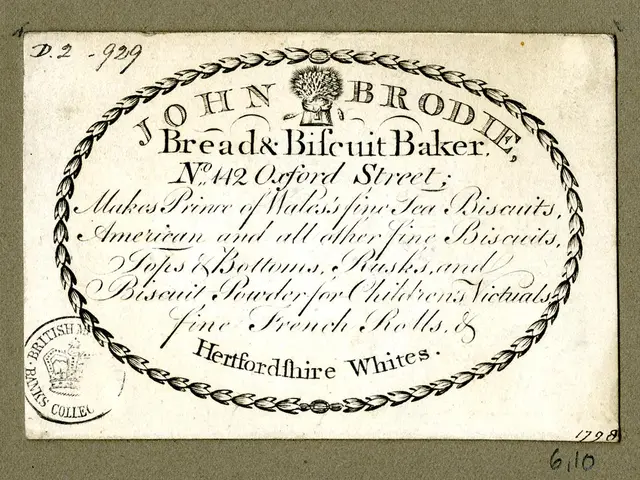 D.2 - 929
JOHN BRODIE,
Bread & Biſcuit Baker,
No. 142 Oxford Street;
Makes Prince of Wales's fine Tea Biscuits,
American and all other fine Biscuits,
Tops & Bottoms, Rusks, and
Biscuit Powder for Children's Victuals
fine French Rolls, &
Hertfordſhire Whites.
BRITISH
BANKS COLLEC
1798
6,10